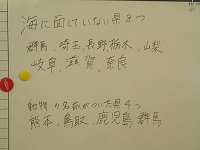 海に面していない県8つ
群馬、埼玉、長野栃木、山梨
岐阜、滋賀、奈良
動物の名前がついた県4つ
熊本、鳥取、鹿児島、群馬